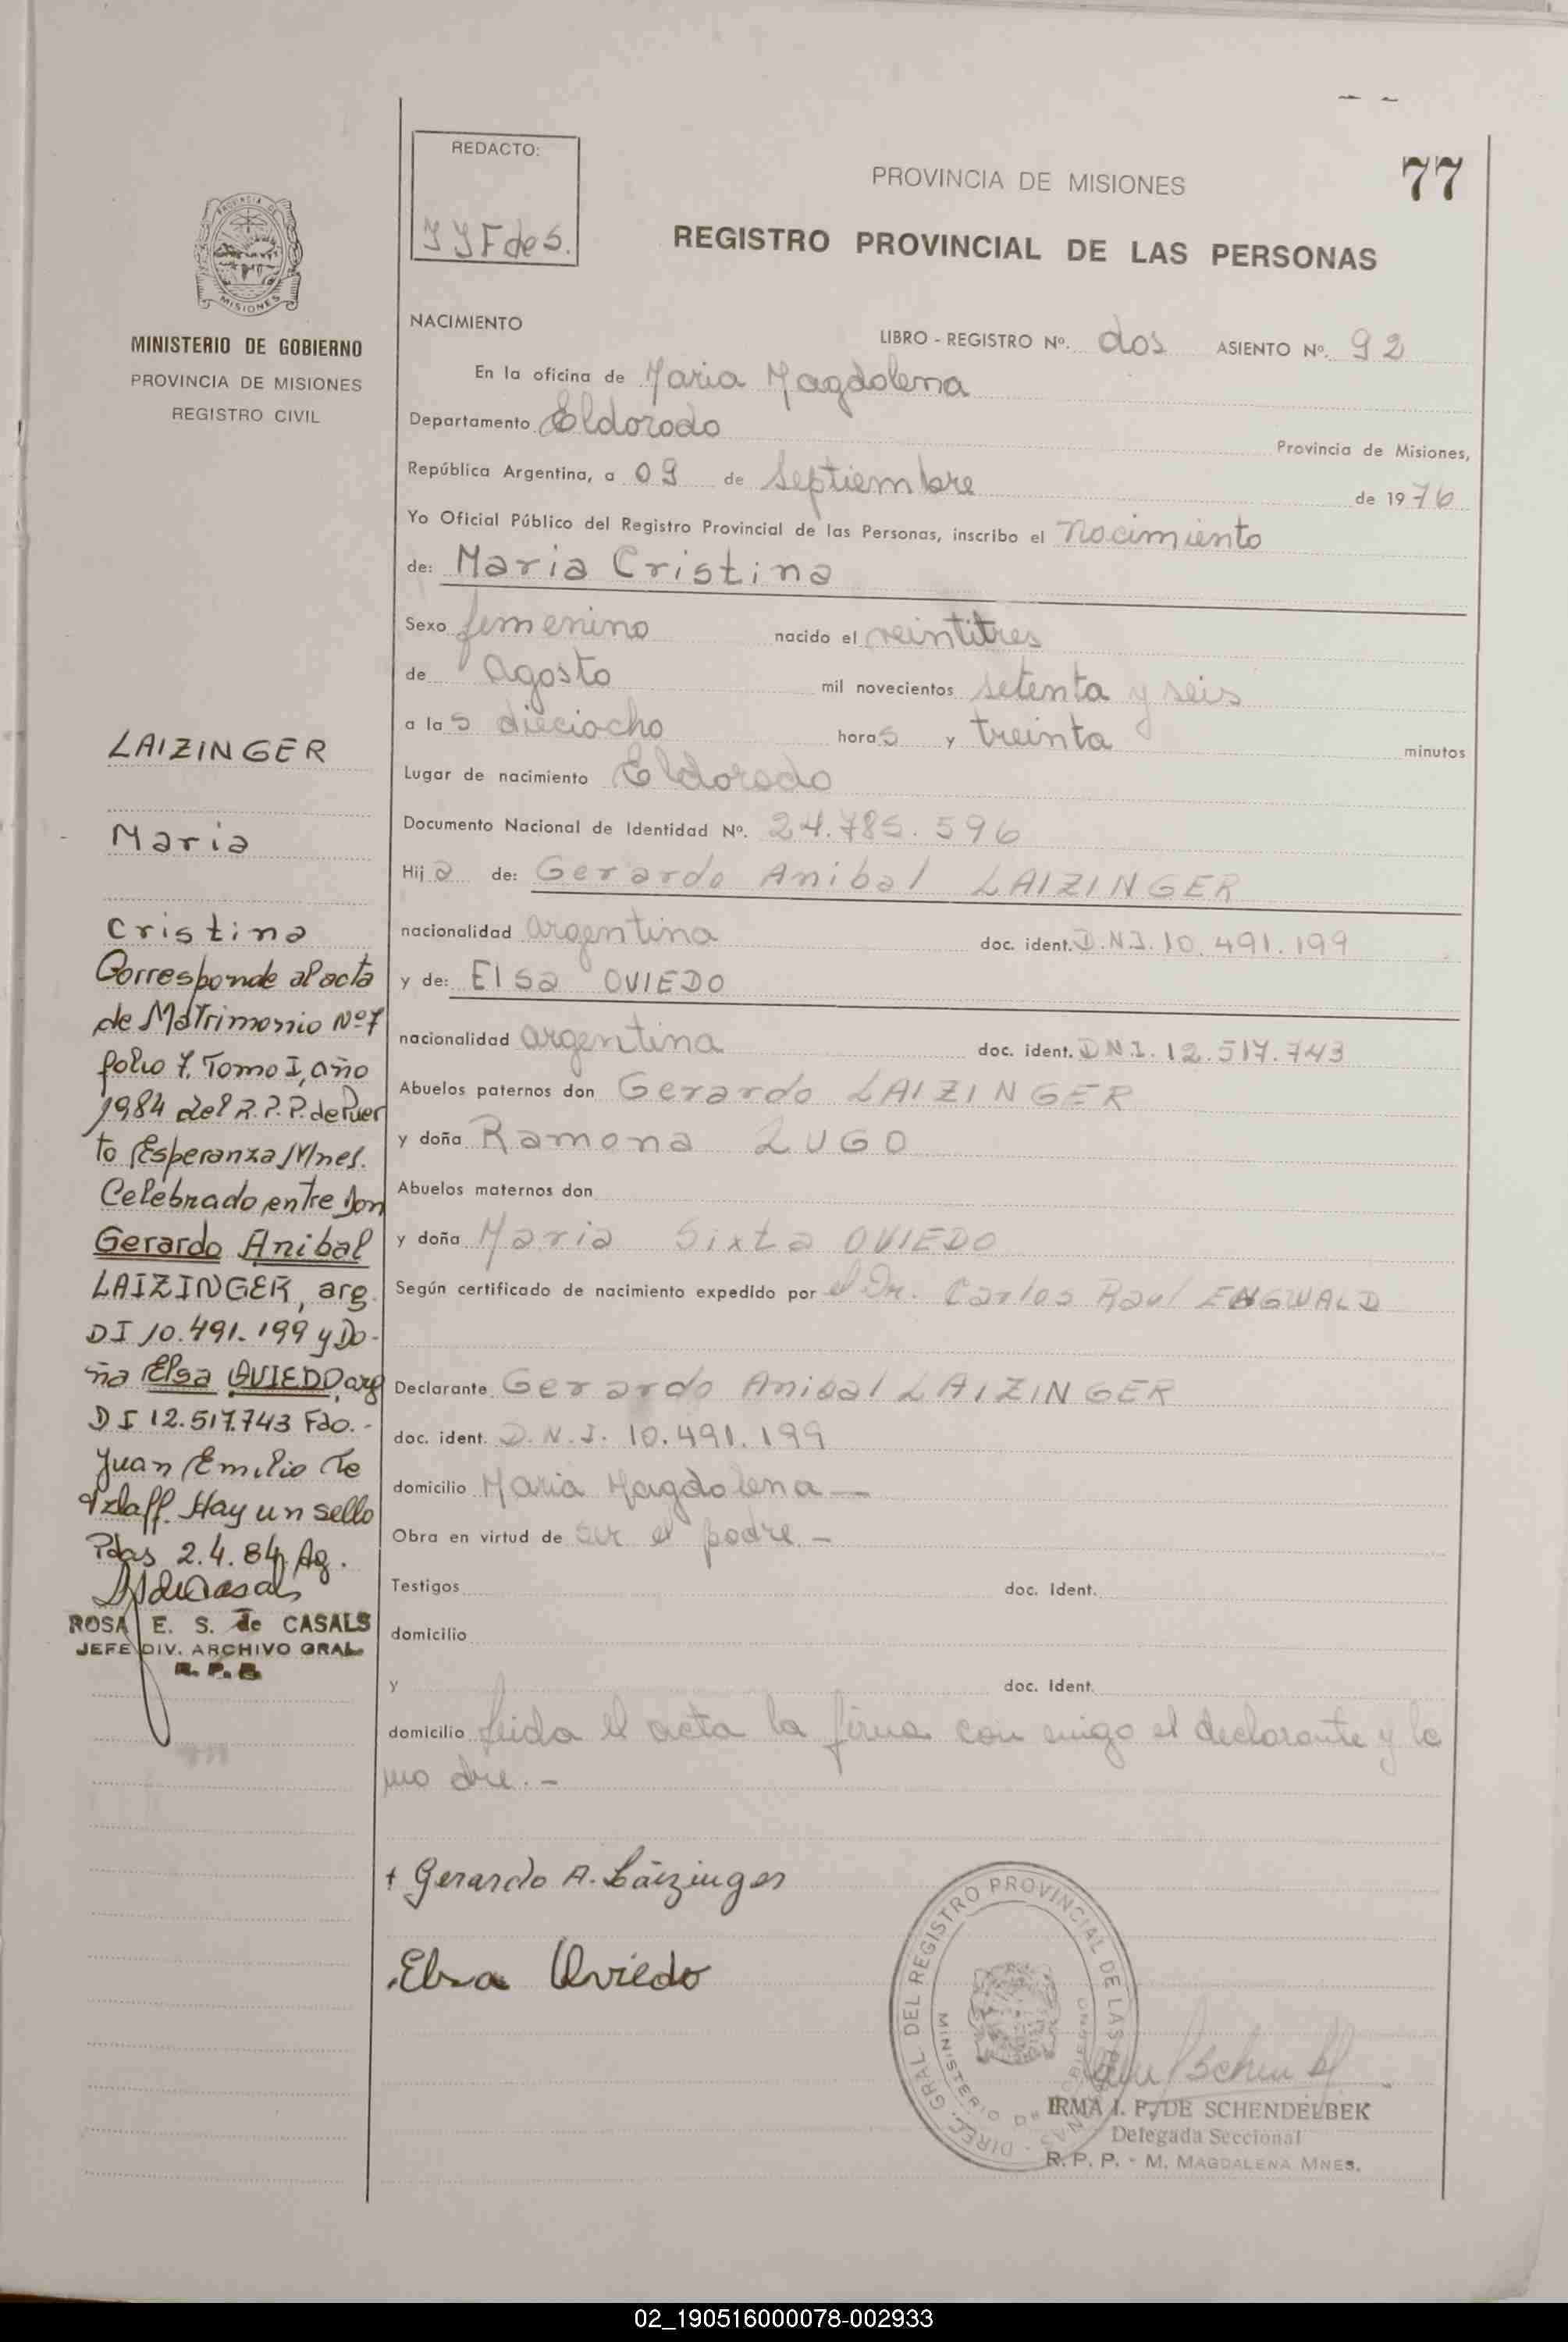 77
REDACTO:
JJFdeS.
PROVINCIA DE MISIONES
REGISTRO PROVINCIAL DE LAS PERSONAS
PROVINCIA DE
MISIONES
MINISTERIO DE GOBIERNO
PROVINCIA DE MISIONES
REGISTRO CIVIL
LAIZINGER
Maria
Cristina
Corresponde al acta
de Matrimonio Nº 7
folio 7. Tomo I, año
1984 del R.P.P. de Puer
to Esperanza Mnes.
Celebrado entre Don
Gerardo Anibal
LAIZINGER, arg.
DI 10.491.199 y Do-
ña Elsa OVIEDO, arg
DI 12.517.743 Fdo.-
Juan Emilio Te
tzlaff. Hay un sello
Pdas 2.4.84. Ag.
ROSA E. S. de CASALS
JEFE DIV. ARCHIVO GRAL.
R. P. P.
NACIMIENTO
LIBRO - REGISTRO Nº. dos ASIENTO Nº. 92
En la oficina de Maria Magdalena
Departamento Eldorado Provincia de Misiones,
República Argentina, a 09 de septiembre de 1976
Yo Oficial Público del Registro Provincial de las Personas, inscribo el Nacimiento
de: Maria Cristina
Sexo femenino nacido el veintitres
de Agosto mil novecientos setenta y seis
a las dieciocho horas y treinta minutos
Lugar de nacimiento Eldorado
Documento Nacional de Identidad Nº. 24.785.596
Hija de: Gerardo Anibal LAIZINGER
nacionalidad argentina doc. ident. D.N.I. 10.491.199
y de: Elsa OVIEDO
nacionalidad argentina doc. ident. DN.I. 12.517.743
Abuelos paternos don Gerardo LAIZINGER
y doña Ramona LUGO
Abuelos maternos don
y doña Maria Sixta OVIEDO
Según certificado de nacimiento expedido por el Dr. Carlos Raul ENGWALD
Declarante Gerardo Anibal LAIZINGER
doc. ident. D.N.I. 10.491.199
domicilio Maria Magdalena —
Obra en virtud de ser el padre.-
Testigos doc. Ident.
domicilio
y doc. Ident.
domicilio leida el acta la firma con migo el declarante y la
madre.-
+ Gerardo A. Laizinger
Elsa Oviedo
DIREC. GRAL. DEL REGISTRO PROVINCIAL DE LAS PERSONAS
MINISTERIO DE GOBIERNO
IRMA I. F. DE SCHENDELBEK
Delegada Seccional
R. P. P. - M. MAGDALENA MNES.
02_190516000078-002933